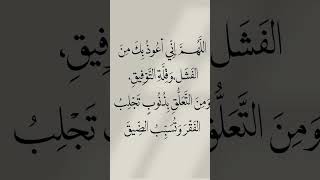 اللَّهُمَّ إِنِّي أَعُوذُ بِكَ مِنَ
الفَشَلِ، وَقِلَّةِ التَّوْفِيقِ،
وَمِنَ التَّعَلُّقِ بِذُنُوبٍ تَجْلِبُ
الفَقْرَ وَتُسَبِّبُ الضِّيقَ